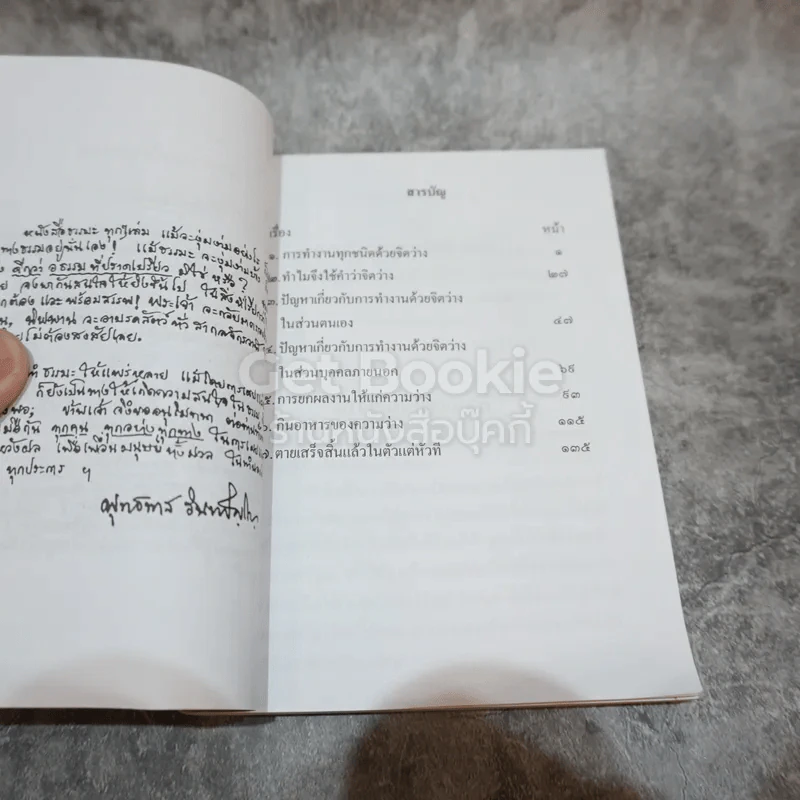 หนังสือธรรมะ ทุกๆเล่ม แม้จะงุ่มง่ามอย่างไร
ทางธรรมอยู่นั่นเอง! แม้ธรรมะ จะงุ่มง่ามบ้าง
ดีกว่า อธรรม ที่ปราดเปรียว มิใช่ หรือ?
จงมากันสนใจให้ยิ่งขึ้นไป ในสิ่งที่เรียกว่า
ถูกต้อง และพร้อมสรรพ! พระเจ้า จะกลับมา
นิพพาน จะอาบรดสัตว์ทั่ว สากลจักรวาล
โดยไม่ต้องสงสัยเลย.
ธรรมะ ให้แพร่หลาย แม้โดยการ
ก็ยังเป็นทางให้เกิดความสนใจในธรรม
ข้าพเจ้า จึงขออนุโมทนา
มือกัน ทุกคน, ทุกอย่างทุกทาง ในการ
หวังผล เพื่อเพื่อนมนุษย์ ทั้งมวล
ทุกประการ ฯ
พุทธทาส อินทปัญโญ
สารบัญ
เรื่อง หน้า
๑. การทำงานทุกชนิดด้วยจิตว่าง ๑
๒. ทำไมจึงใช้คำว่าจิตว่าง ๒๗
๓. ปัญหาเกี่ยวกับการทำงานด้วยจิตว่าง
ในส่วนตนเอง ๔๗
๔. ปัญหาเกี่ยวกับการทำงานด้วยจิตว่าง
ในส่วนบุคคลภายนอก ๖๙
๕. การยกผลงานให้แก่ความว่าง ๙๓
๖. กินอาหารของความว่าง ๑๑๕
๗. ตายเสร็จสิ้นแล้วในตัวแต่หัวที ๑๓๕
Get Bookie
ร้านหนังสือบุ๊คกี้